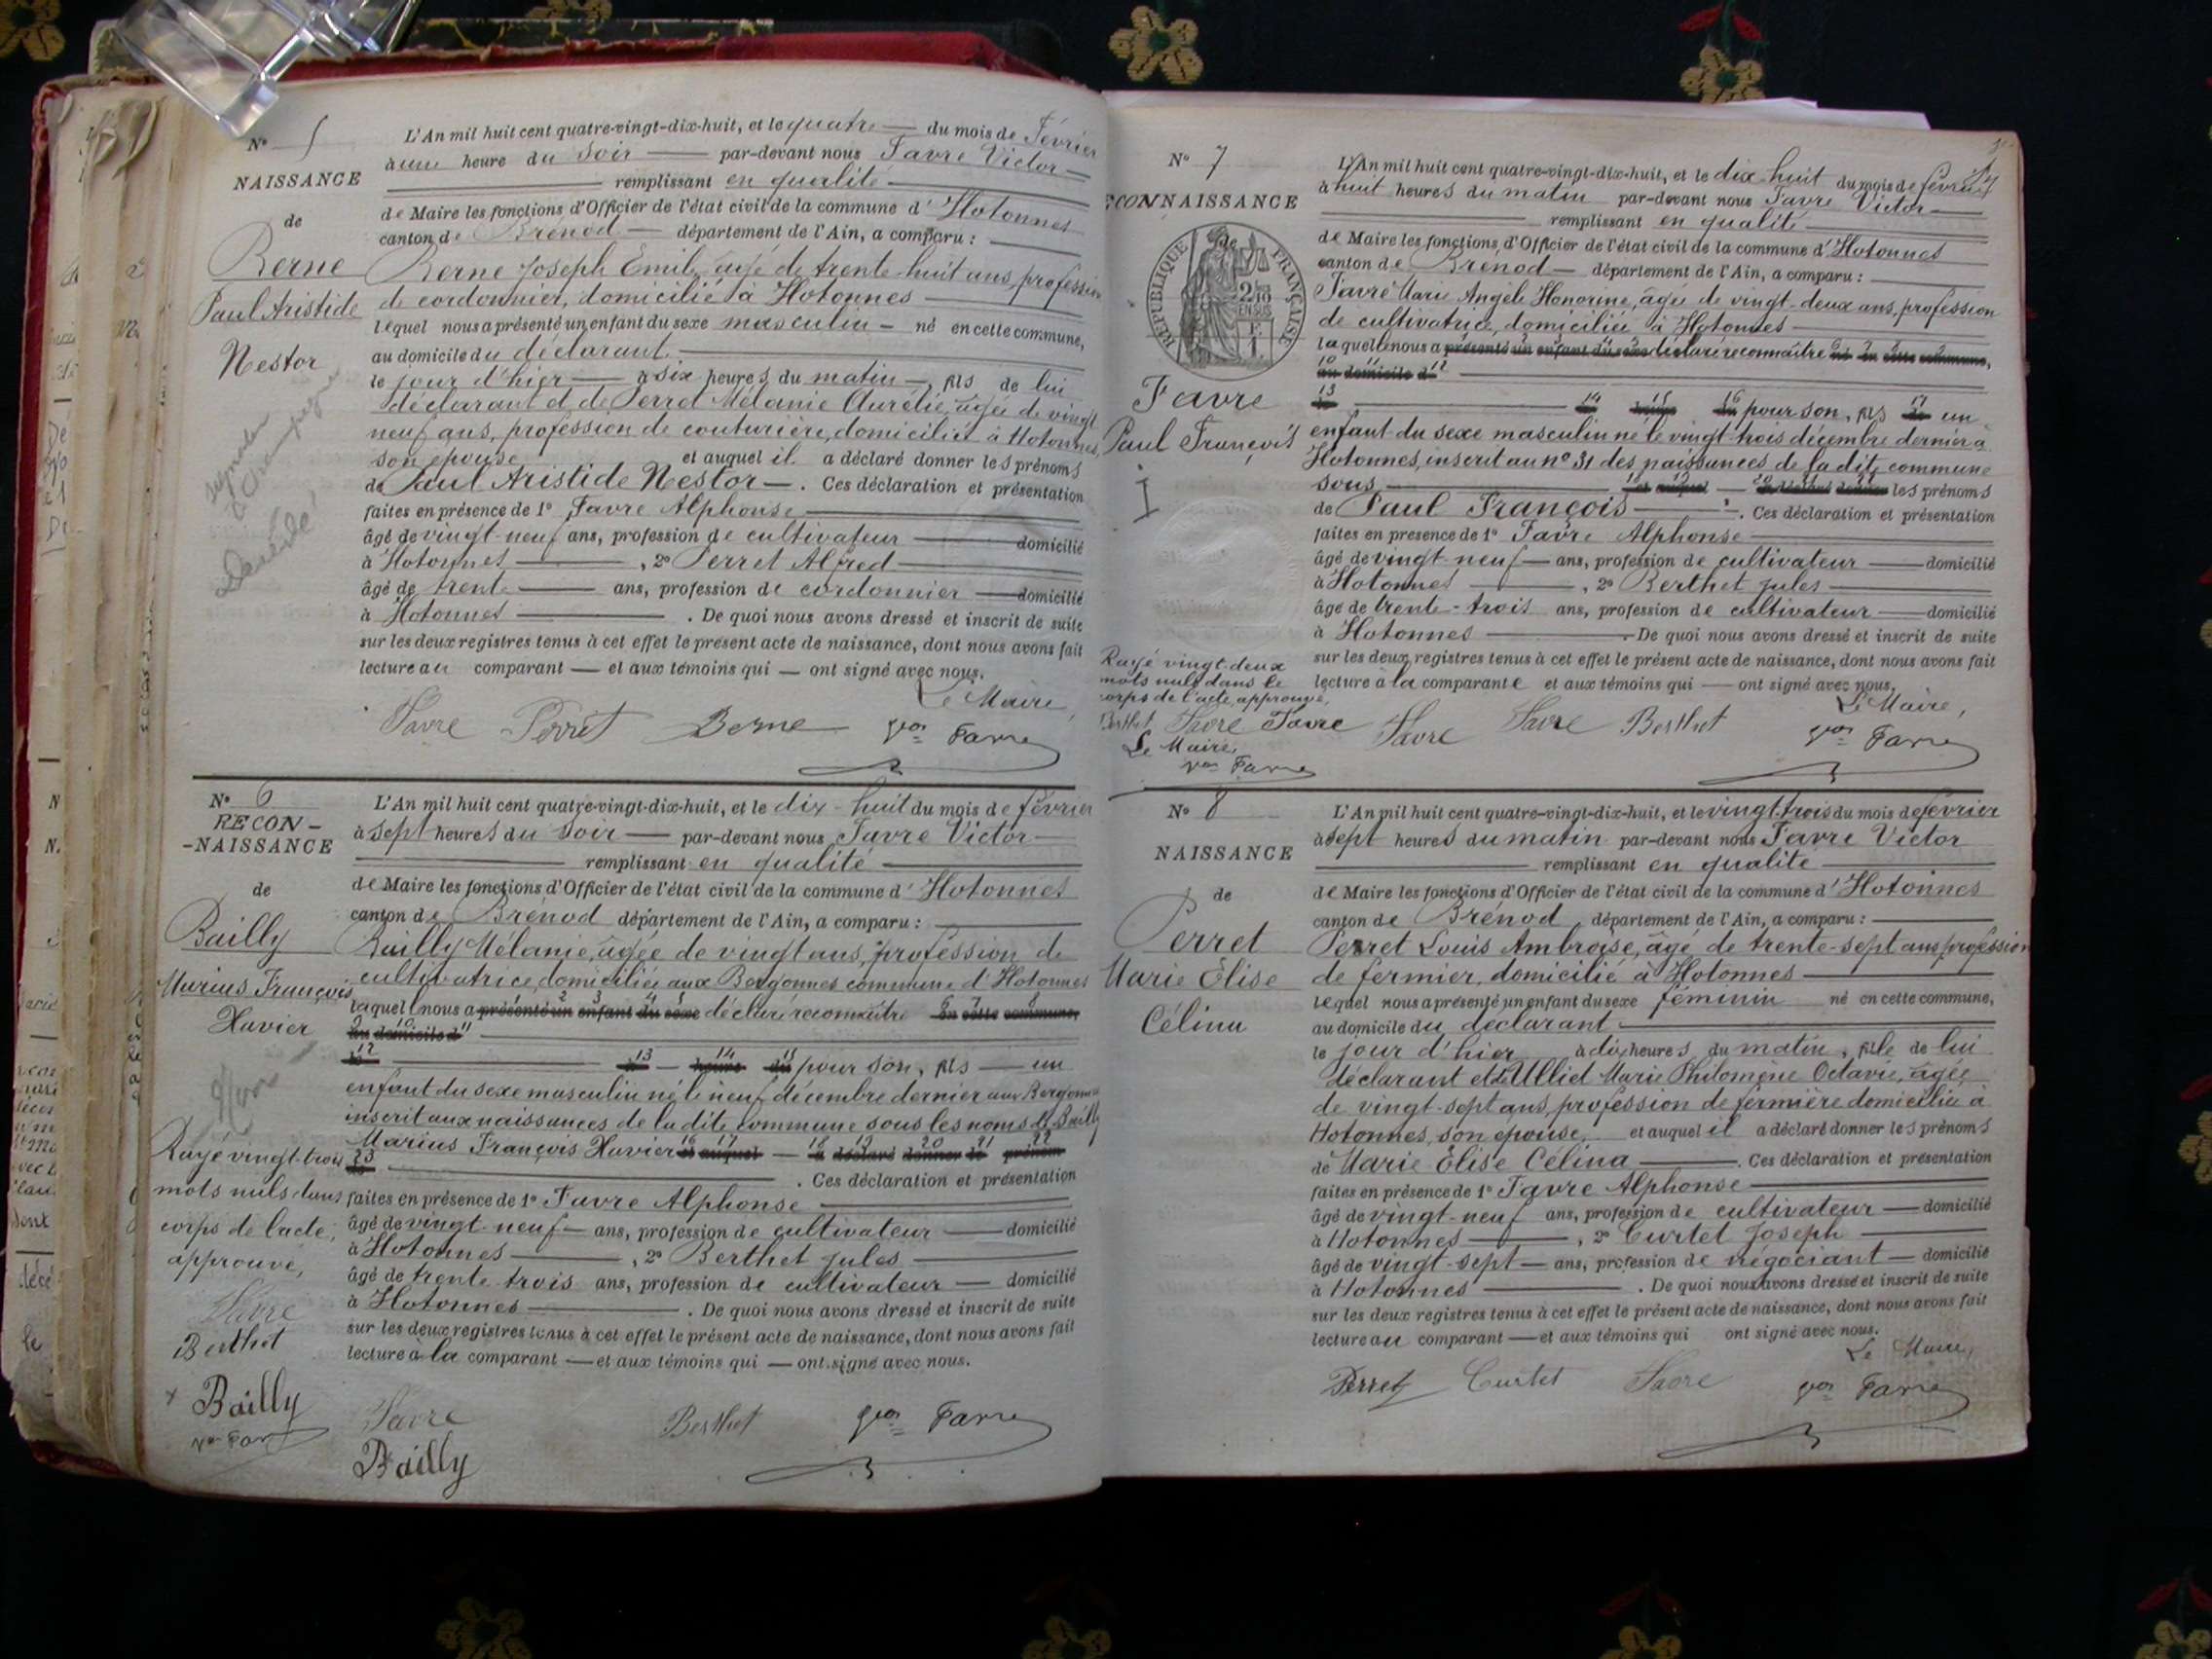 N° 5
NAISSANCE
de
Berne
Paul Aristide
Nestor
L'An mil huit cent quatre-vingt-dix-huit, et le quatre — du mois de Février
à une heure du soir — par-devant nous Favre Victor —
remplissant en qualité
de Maire les fonctions d'Officier de l'état civil de la commune d' Hotonnes
canton de Brénod — département de l'Ain, a comparu :
Berne Joseph Emile, âgé de trente-huit ans, profession
de cordonnier, domicilié à Hotonnes
lequel nous a présenté un enfant du sexe masculin — né en cette commune,
au domicile du déclarant
le jour d'hier — à six heures du matin —, fils de lui
déclarant et de Perret Mélanie Aurélie, âgée de vingt
neuf ans, profession de couturière, domiciliée à Hotonnes,
son épouse et auquel il a déclaré donner les prénoms
de Paul Aristide Nestor — . Ces déclaration et présentation
faites en présence de 1° Favre Alphonse
âgé de vingt-neuf ans, profession de cultivateur — domicilié
à Hotonnes — , 2° Perret Alfred
âgé de trente — ans, profession de cordonnier — domicilié
à Hotonnes — . De quoi nous avons dressé et inscrit de suite
sur les deux registres tenus à cet effet le présent acte de naissance, dont nous avons fait
lecture au comparant — et aux témoins qui — ont signé avec nous.
Le Maire,
Favre Perret Berne Favre
N° 6
RECON-
-NAISSANCE
de
Bailly
Marius François
Xavier
Rayé vingt-trois
mots nuls dans
corps de l'acte,
approuvé,
Favre
Berthet
Bailly
L'An mil huit cent quatre-vingt-dix-huit, et le dix-huit du mois de février
à sept heures du soir — par-devant nous Favre Victor
remplissant en qualité
de Maire les fonctions d'Officier de l'état civil de la commune d' Hotonnes
canton de Brénod département de l'Ain, a comparu :
Bailly Mélanie, âgée de vingt ans, profession de
cultivatrice, domiciliée aux Bergonnes commune d'Hotonnes
laquelle nous a présenté un enfant du sexe déclaré reconnaître en cette commune,
au domicile d
12 13 — heure du pour son, fils — un
enfant du sexe masculin né le neuf décembre dernier aux Bergonnes
inscrit aux naissances de la dite commune sous les noms de Bailly
Marius François Xavier et auquel — a déclaré donner le prénom
. Ces déclaration et présentation
faites en présence de 1° Favre Alphonse
âgé de vingt-neuf — ans, profession de cultivateur — domicilié
à Hotonnes — , 2° Berthet Jules
âgé de trente-trois ans, profession de cultivateur — domicilié
à Hotonnes — . De quoi nous avons dressé et inscrit de suite
sur les deux registres tenus à cet effet le présent acte de naissance, dont nous avons fait
lecture à la comparant — et aux témoins qui — ont signé avec nous.
Favre Berthet Favre
Bailly
N° 7
ECONNAISSANCE
de
RÉPUBLIQUE FRANÇAISE
2/10 EN SUS
Favre
Paul François
Rayé vingt-deux
mots nuls dans le
corps de l'acte, approuvé,
Berthet Favre Favre
Le Maire,
Favre
L'An mil huit cent quatre-vingt-dix-huit, et le dix-huit du mois de février
à huit heures du matin par-devant nous Favre Victor
remplissant en qualité
de Maire les fonctions d'Officier de l'état civil de la commune d' Hotonnes
canton de Brénod — département de l'Ain, a comparu :
Favre Marie Angèle Honorine, âgée de vingt-deux ans, profession
de cultivatrice, domiciliée à Hotonnes
laquelle nous a présenté un enfant du sexe déclaré reconnaître né en cette commune,
au domicile d
13 14 15 16 pour son, fils de un
enfant du sexe masculin né le vingt-trois décembre dernier à
Hotonnes, inscrit au n° 31 des naissances de la dite commune
sous — et auquel — a déclaré donner les prénoms
de Paul François — . Ces déclaration et présentation
faites en présence de 1° Favre Alphonse
âgé de vingt-neuf — ans, profession de cultivateur — domicilié
à Hotonnes — , 2° Berthet Jules
âgé de trente-trois ans, profession de cultivateur — domicilié
à Hotonnes — . De quoi nous avons dressé et inscrit de suite
sur les deux registres tenus à cet effet le présent acte de naissance, dont nous avons fait
lecture à la comparante et aux témoins qui — ont signé avec nous.
Le Maire,
Favre Favre Berthet Favre
N° 8
NAISSANCE
de
Perret
Marie Élise
Célina
L'An mil huit cent quatre-vingt-dix-huit, et le vingt-trois du mois de février
à sept heures du matin par-devant nous Favre Victor
remplissant en qualité
de Maire les fonctions d'Officier de l'état civil de la commune d' Hotonnes
canton de Brénod, département de l'Ain, a comparu :
Perret Louis Ambroise, âgé de trente-sept ans, profession
de fermier, domicilié à Hotonnes
lequel nous a présenté un enfant du sexe féminin né en cette commune,
au domicile du déclarant
le jour d'hier à dix heures du matin, fille de lui
déclarant et de Ulliet Marie Philomène Octavie, âgée
de vingt-sept ans, profession de fermière domiciliée à
Hotonnes, son épouse, et auquel il a déclaré donner les prénoms
de Marie Élise Célina — . Ces déclaration et présentation
faites en présence de 1° Favre Alphonse
âgé de vingt-neuf ans, profession de cultivateur — domicilié
à Hotonnes — , 2° Curtet Joseph
âgé de vingt-sept — ans, profession de négociant — domicilié
à Hotonnes — . De quoi nous avons dressé et inscrit de suite
sur les deux registres tenus à cet effet le présent acte de naissance, dont nous avons fait
lecture au comparant — et aux témoins qui ont signé avec nous.
Le Maire,
Perret Curtet Favre Favre